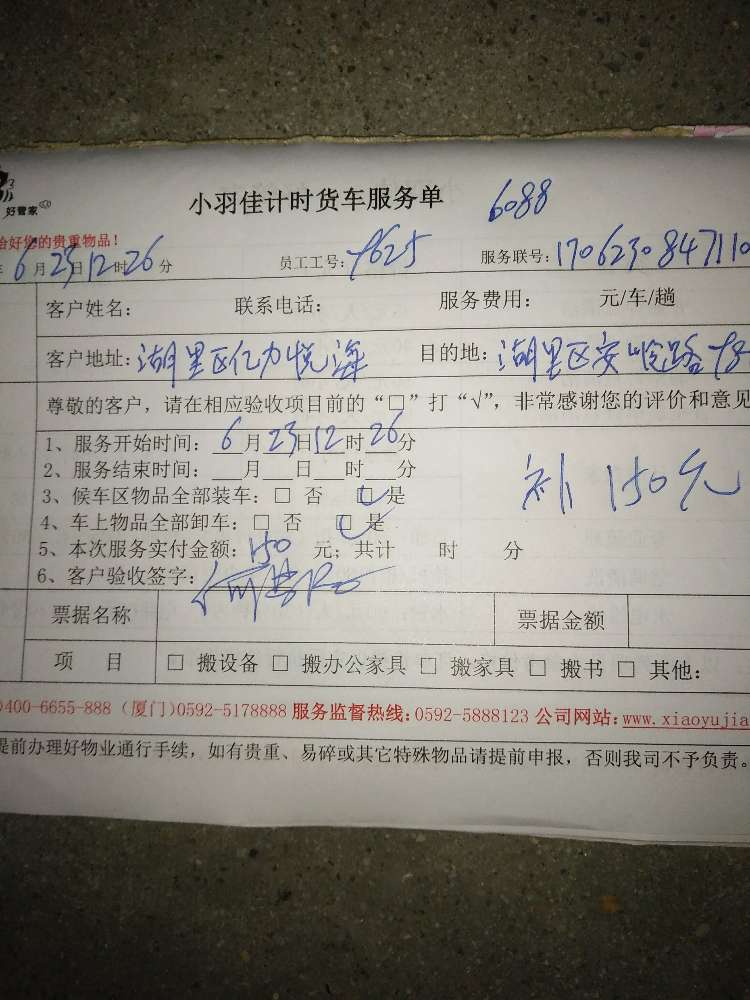 好管家
小羽佳计时货车服务单 6088
好您的贵重物品！
6月23日12时26分 员工工号：9625 服务联号：170623084711
客户姓名： 联系电话： 服务费用： 元/车/趟
客户地址：湖里区亿力悦海 目的地：湖里区安岭路
尊敬的客户，请在相应验收项目前的“□”打“√”，非常感谢您的评价和意见
1、服务开始时间：6月23日12时26分
2、服务结束时间：___月___日___时___分
补150元
3、候车区物品全部装车：□ 否 ☑ 是
4、车上物品全部卸车：□ 否 ☑ 是
5、本次服务实付金额：150 元；共计 时 分
6、客户验收签字：
票据名称 票据金额
项 目 □ 搬设备 □ 搬办公家具 □ 搬家具 □ 搬书 □ 其他：
400-6655-888（厦门）0592-5178888 服务监督热线：0592-5888123 公司网站：www.xiaoyujia
提前办理好物业通行手续，如有贵重、易碎或其它特殊物品请提前申报，否则我司不予负责。